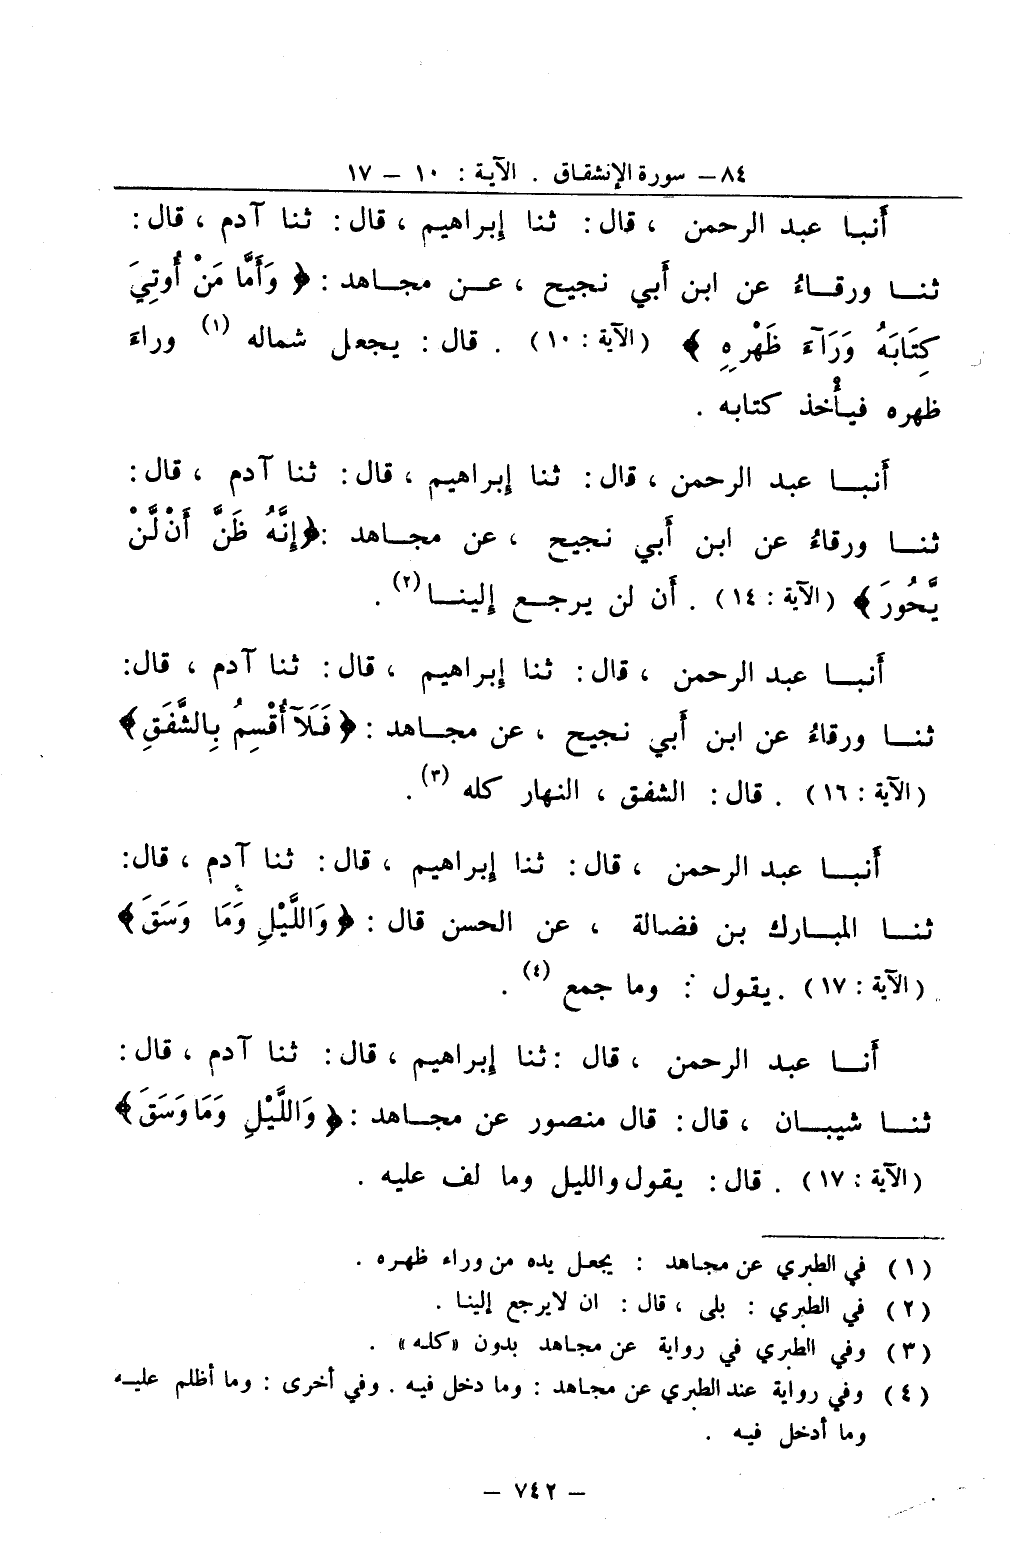 ٨٤ – سورة الإنشقاق . الآية : ١٠ – ١٧
أنبا عبد الرحمن ، قال : ثنا إبراهيم ، قال : ثنا آدم ، قال :
ثنا ورقاءُ عن ابن أبي نجيح ، عن مجاهد : ﴿ وَأَمَّا مَنْ أُوتِيَ
كِتَابَهُ وَرَآءَ ظَهْرِهِ ﴾ (الآية : ١٠) . قال : يجعل شماله (١) وراءَ
ظهره فيأخذ كتابه .
أنبا عبد الرحمن ، قال : ثنا إبراهيم ، قال : ثنا آدم ، قال :
ثنا ورقاءُ عن ابن أبي نجيح ، عن مجاهد : ﴿إِنَّهُ ظَنَّ أَنْ لَّنْ
يَّحُورَ﴾ (الآية : ١٤) . أن لن يرجع إلينا (٢) .
أنبا عبد الرحمن ، قال : ثنا إبراهيم ، قال : ثنا آدم ، قال :
ثنا ورقاءُ عن ابن أبي نجيح ، عن مجاهد : ﴿ فَلَآ أُقْسِمُ بِالشَّفَقِ﴾
(الآية : ١٦) . قال : الشفق ، النهار كله (٣) .
أنبا عبد الرحمن ، قال : ثنا إبراهيم ، قال : ثنا آدم ، قال :
ثنا المبارك بن فضالة ، عن الحسن قال : ﴿ وَاللَّيْلِ وَمَا وَسَقَ﴾
(الآية : ١٧) . يقول : وما جمع (٤) .
أنا عبد الرحمن ، قال : ثنا إبراهيم ، قال : ثنا آدم ، قال :
ثنا شيبان ، قال : قال منصور عن مجاهد : ﴿ وَاللَّيْلِ وَمَا وَسَقَ﴾
(الآية : ١٧) . قال : يقول والليل وما لف عليه .
(١) في الطبري عن مجاهد : يجعل يده من وراء ظهره .
(٢) في الطبري : بلى ، قال : ان لايرجع إلينا .
(٣) وفي الطبري في رواية عن مجاهد بدون «كله» .
(٤) وفي رواية عند الطبري عن مجاهد : وما دخل فيه . وفي أخرى : وما أظلم عليه
وما أدخل فيه .
– ٧٤٢ –